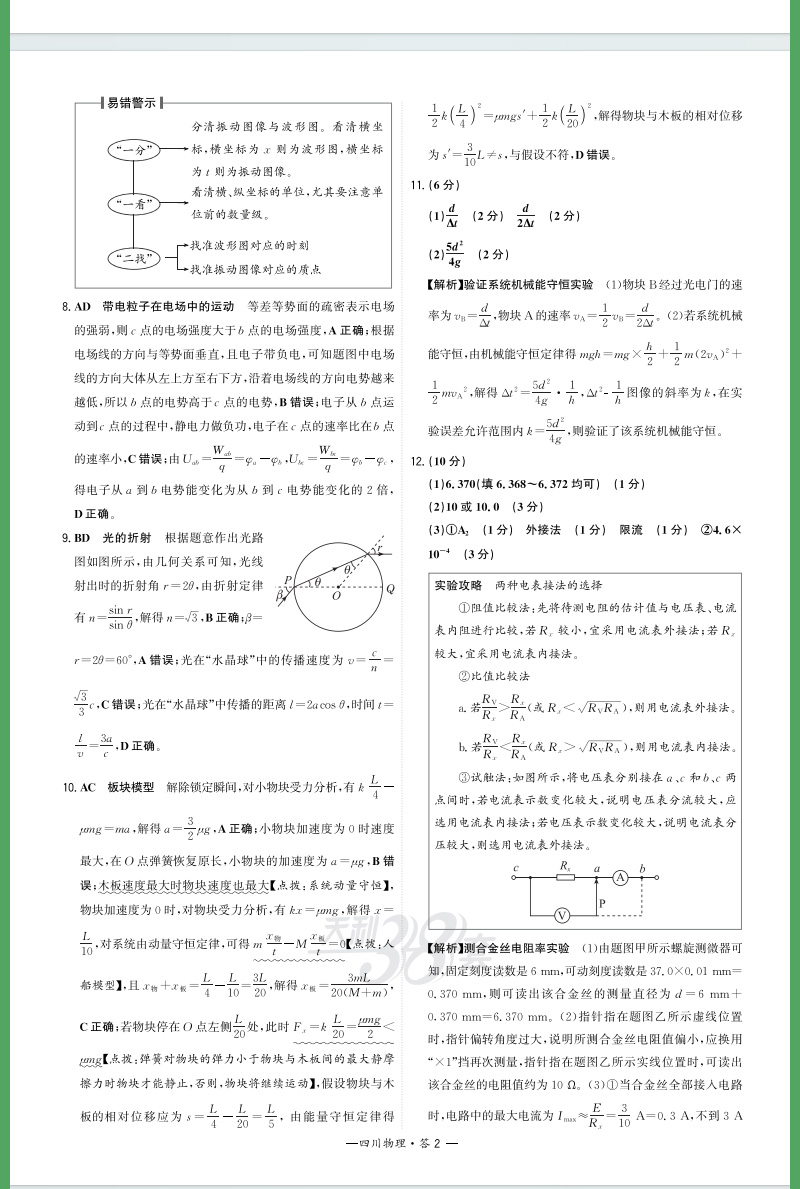 易错警示
分清振动图像与波形图。看清横坐
“一分” 标,横坐标为 x 则为波形图,横坐标
为 t 则为振动图像。
看清横、纵坐标的单位,尤其要注意单
“一看” 位前的数量级。
找准波形图对应的时刻
“二找”
找准振动图像对应的质点
8. AD 带电粒子在电场中的运动 等差等势面的疏密表示电场
的强弱,则 c 点的电场强度大于 b 点的电场强度,A 正确;根据
电场线的方向与等势面垂直,且电子带负电,可知题图中电场
线的方向大体从左上方至右下方,沿着电场线的方向电势越来
越低,所以 b 点的电势高于 c 点的电势,B 错误;电子从 b 点运
动到 c 点的过程中,静电力做负功,电子在 c 点的速率比在 b 点
的速率小,C 错误;由 U_ab=W_ab/q=φ_a−φ_b,U_bc=W_bc/q=φ_b−φ_c,
得电子从 a 到 b 电势能变化为从 b 到 c 电势能变化的 2 倍,
D 正确。
9. BD 光的折射 根据题意作出光路
图如图所示,由几何关系可知,光线
射出时的折射角 r=2θ,由折射定律
有 n=sin r/sin θ,解得 n=√3,B 正确;β=
P β θ θ r O Q
r=2θ=60°,A 错误;光在“水晶球”中的传播速度为 v=c/n=
√3/3 c,C 错误;光在“水晶球”中传播的距离 l=2acos θ,时间 t=
l/v=3a/c,D 正确。
10. AC 板块模型 解除锁定瞬间,对小物块受力分析,有 k L/4−
μmg=ma,解得 a=3/2 μg,A 正确;小物块加速度为 0 时速度
最大,在 O 点弹簧恢复原长,小物块的加速度为 a=μg,B 错
误;木板速度最大时物块速度也最大【点拨:系统动量守恒】,
物块加速度为 0 时,对物块受力分析,有 kx=μmg,解得 x=
L/10,对系统由动量守恒定律,可得 m x物/t−M x板/t=0【点拨:人
船模型】,且 x物+x板=L/4−L/10=3L/20,解得 x板=3mL/20(M+m),
C 正确;若物块停在 O 点左侧 L/20 处,此时 F_x=k L/20=μmg/2<
μmg【点拨:弹簧对物块的弹力小于物块与木板间的最大静摩
擦力时物块才能静止,否则,物块将继续运动】,假设物块与木
板的相对位移应为 s=L/4−L/20=L/5,由能量守恒定律得
1/2 k(L/4)²=μmgs′+1/2 k(L/20)²,解得物块与木板的相对位移
为 s′=3/10 L≠s,与假设不符,D 错误。
11. (6 分)
(1) d/Δt (2 分) d/2Δt (2 分)
(2) 5d²/4g (2 分)
【解析】验证系统机械能守恒实验 (1)物块 B 经过光电门的速
率为 v_B=d/Δt,物块 A 的速率 v_A=1/2 v_B=d/2Δt。(2)若系统机械
能守恒,由机械能守恒定律得 mgh=mg×h/2+1/2 m(2v_A)²+
1/2 mv_A²,解得 Δt²=5d²/4g·1/h,Δt²-1/h 图像的斜率为 k,在实
验误差允许范围内 k=5d²/4g,则验证了该系统机械能守恒。
12. (10 分)
(1)6.370(填 6.368～6.372 均可) (1 分)
(2)10 或 10.0 (3 分)
(3)①A₂ (1 分) 外接法 (1 分) 限流 (1 分) ②4.6×
10⁻⁴ (3 分)
实验攻略 两种电表接法的选择
①阻值比较法:先将待测电阻的估计值与电压表、电流
表内阻进行比较,若 R_x 较小,宜采用电流表外接法;若 R_x
较大,宜采用电流表内接法。
②比值比较法
a. 若 R_V/R_x>R_x/R_A(或 R_x<√(R_V R_A)),则用电流表外接法。
b. 若 R_V/R_x<R_x/R_A(或 R_x>√(R_V R_A)),则用电流表内接法。
③试触法:如图所示,将电压表分别接在 a、c 和 b、c 两
点间时,若电流表示数变化较大,说明电压表分流较大,应
选用电流表内接法;若电压表示数变化较大,说明电流表分
压较大,则选用电流表外接法。
c R_x a b
A
P
V
天利38套
【解析】测合金丝电阻率实验 (1)由题图甲所示螺旋测微器可
知,固定刻度读数是 6 mm,可动刻度读数是 37.0×0.01 mm=
0.370 mm,则可读出该合金丝的测量直径为 d=6 mm+
0.370 mm=6.370 mm。(2)指针指在题图乙所示虚线位置
时,指针偏转角度过大,说明所测合金丝电阻值偏小,应换用
“×1”挡再次测量,指针指在题图乙所示实线位置时,可读出
该合金丝的电阻值约为 10 Ω。(3)①当合金丝全部接入电路
时,电路中的最大电流为 I_max≈E/R_x=3/10 A=0.3 A,不到 3 A
—四川物理·答 2 —